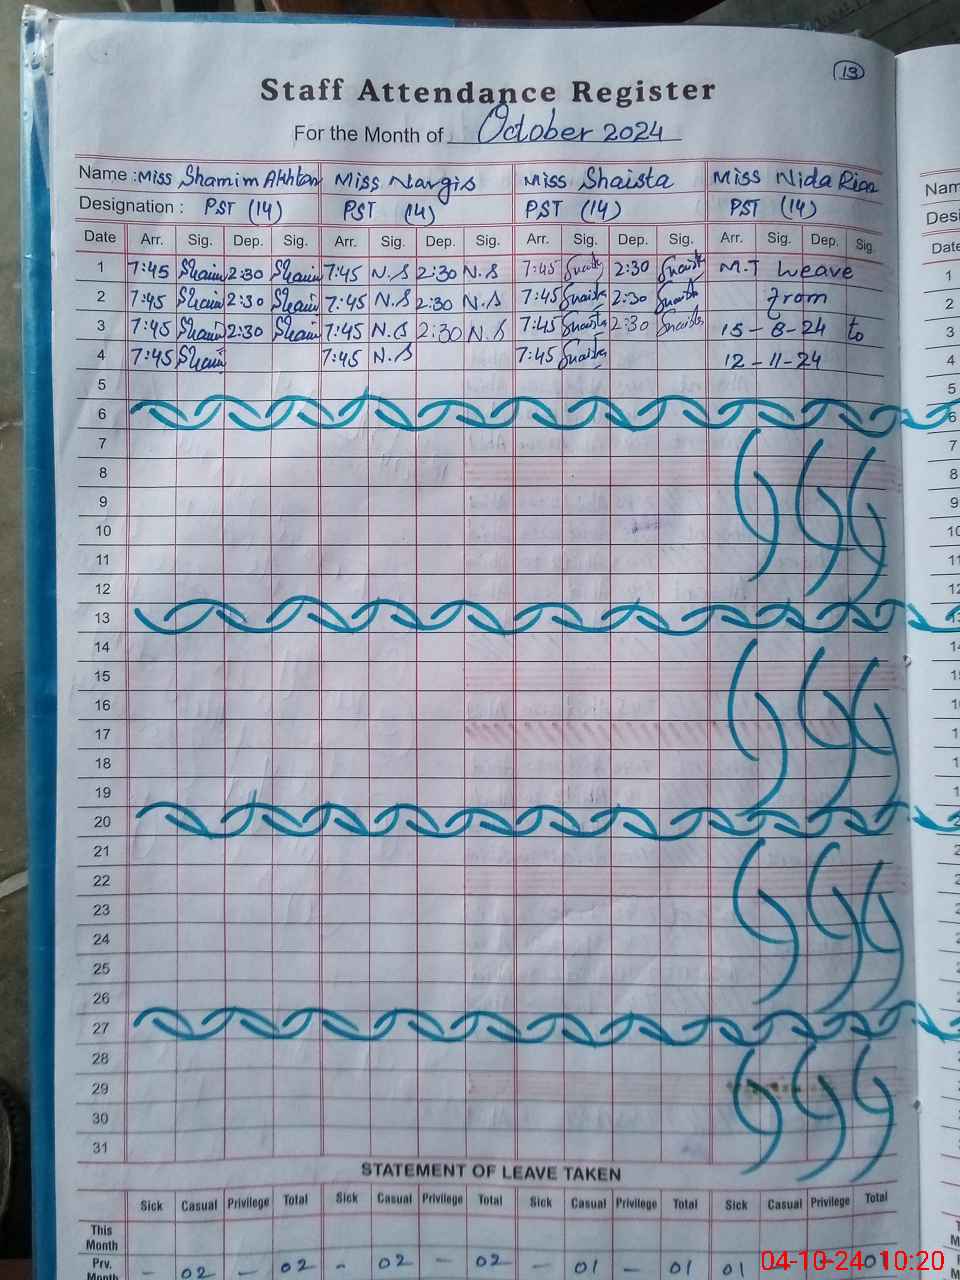 13
Staff Attendance Register
For the Month of October 2024
Name : Miss Shamim Akhtar Miss Nargis Miss Shaista Miss Nida Riaz
Designation : PST (14) PST (14) PST (14) PST (14)
Date Arr. Sig. Dep. Sig. Arr. Sig. Dep. Sig. Arr. Sig. Dep. Sig. Arr. Sig. Dep. Sig.
1 7:45 Sham 2:30 Sham 7:45 N.S 2:30 N.S 7:45 Shaista 2:30 Shaista M.T Leave
2 7:45 Sham 2:30 Sham 7:45 N.S 2:30 N.S 7:45 Shaista 2:30 Shaista from
3 7:45 Sham 2:30 Sham 7:45 N.S 2:30 N.S 7:45 Shaista 2:30 Shaista 15-8-24 to
4 7:45 Sham 7:45 N.S 7:45 Shaista 12-11-24
5
6
7
8
9
10
11
12
13
14
15
16
17
18
19
20
21
22
23
24
25
26
27
28
29
30
31
STATEMENT OF LEAVE TAKEN
Sick Casual Privilege Total Sick Casual Privilege Total Sick Casual Privilege Total Sick Casual Privilege Total
This Month
Prv. Month - 02 - 02 - 02 - 02 - 01 - 01 01
04-10-24 10:20